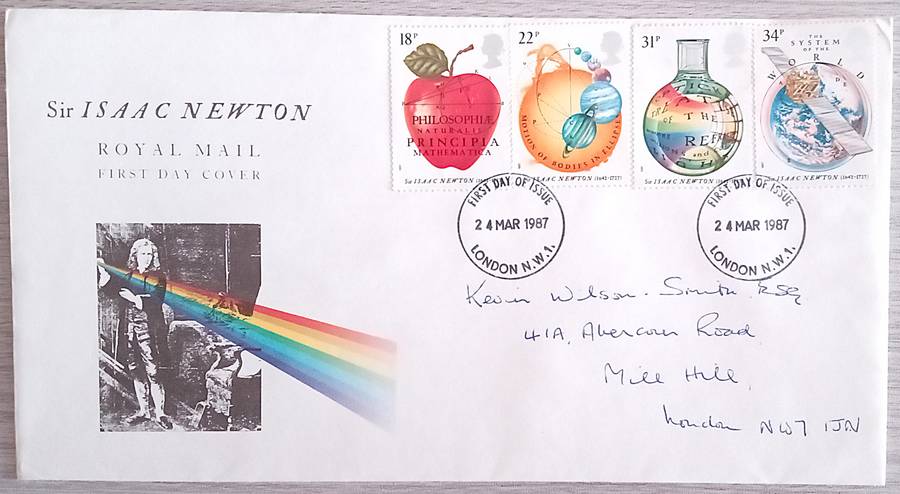 Sir ISAAC NEWTON
ROYAL MAIL
FIRST DAY COVER
18P
PHILOSOPHIÆ
NATURALIS
PRINCIPIA
MATHEMATICA
Sir ISAAC NEWTON (1642-1727)
22P
MOTION OF BODIES IN ELLIPSES
Sir ISAAC NEWTON (1642-1727)
31P
OPTICKS
of THE
REF
and
Sir ISAAC NEWTON (1642-1727)
34P
THE
SYSTEM
OF THE
WORLD
Sir ISAAC NEWTON (1642-1727)
FIRST DAY OF ISSUE
24 MAR 1987
LONDON N.W.1.
FIRST DAY OF ISSUE
24 MAR 1987
LONDON N.W.1.
Kevin Wilson-Smith Esq
41A, Abercorn Road
Mill Hill,
London NW7 1JN